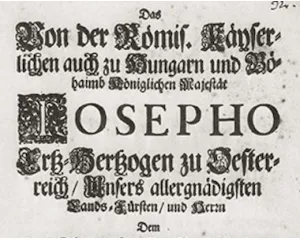 Das
Von der Römis. Käyser-
lichen auch zu Hungarn und Bö-
haimb Königlichen Majestät
JOSEPHO
Ertz-Hertzogen zu Oester-
reich / Unsers allergnädigsten
Lands-Fürsten / und Herrn
Dem